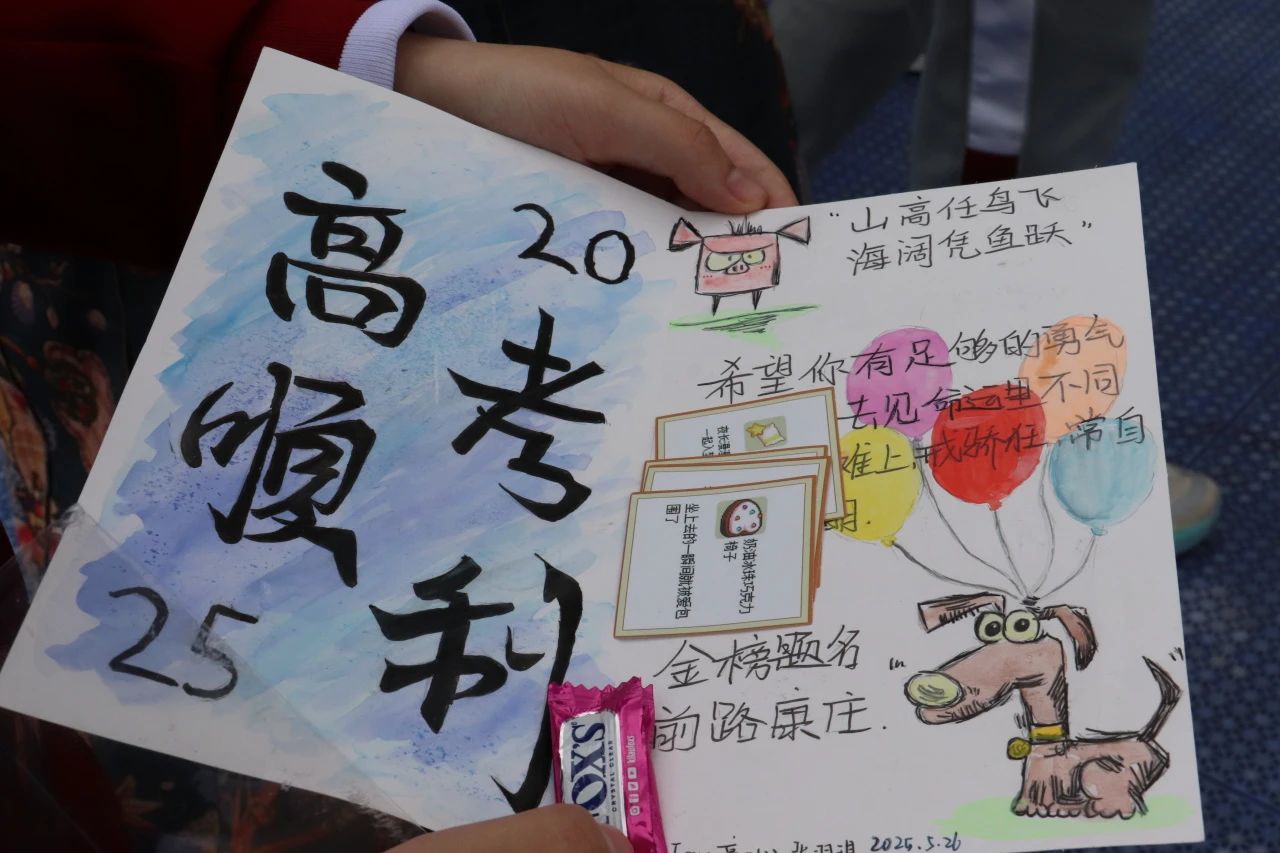 高考
顺利
20
25
“山高任鸟飞
海阔凭鱼跃”
希望你有足够的勇气
去见命运里不同
难上,戒骄狂,常自
金榜题名
前路康庄.
奶油冰珠巧克力
椅子
坐上去的一瞬间就被爱包
围了
SXO
CRYSTAL CLEAR
2025.5.26